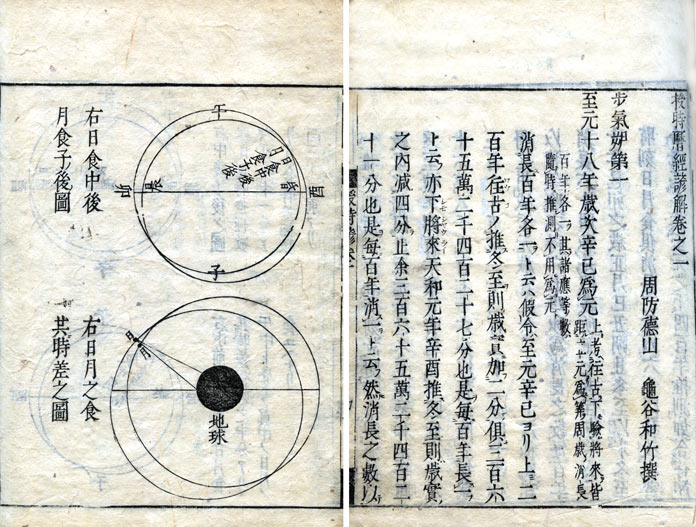 授時曆經諺解卷之一
周防德山　龜谷和竹撰
步氣朔第一
至元十八年歲次辛巳爲元
上考往古下驗將來皆
距立元爲筭周歲消長
百年各一其諸應等數
隨時推測不用爲元
消長百年各一ト云ハ假令至元辛巳ヨリ上二
百年往古ノ推冬至則歲實加二分俱三百六
十五萬二千四百二十七分也是每百年長一
ト云亦下將來天和元年辛酉推冬至則歲實
之內減四分止余三百六十五萬二千四百二
十一分也是每百年消一ト云然消長之數以
午
日食中後
月食子後
酉
卯
辰
子
右日食中後
月食子後圖
日
月
地球
右日月之食
其時差之圖